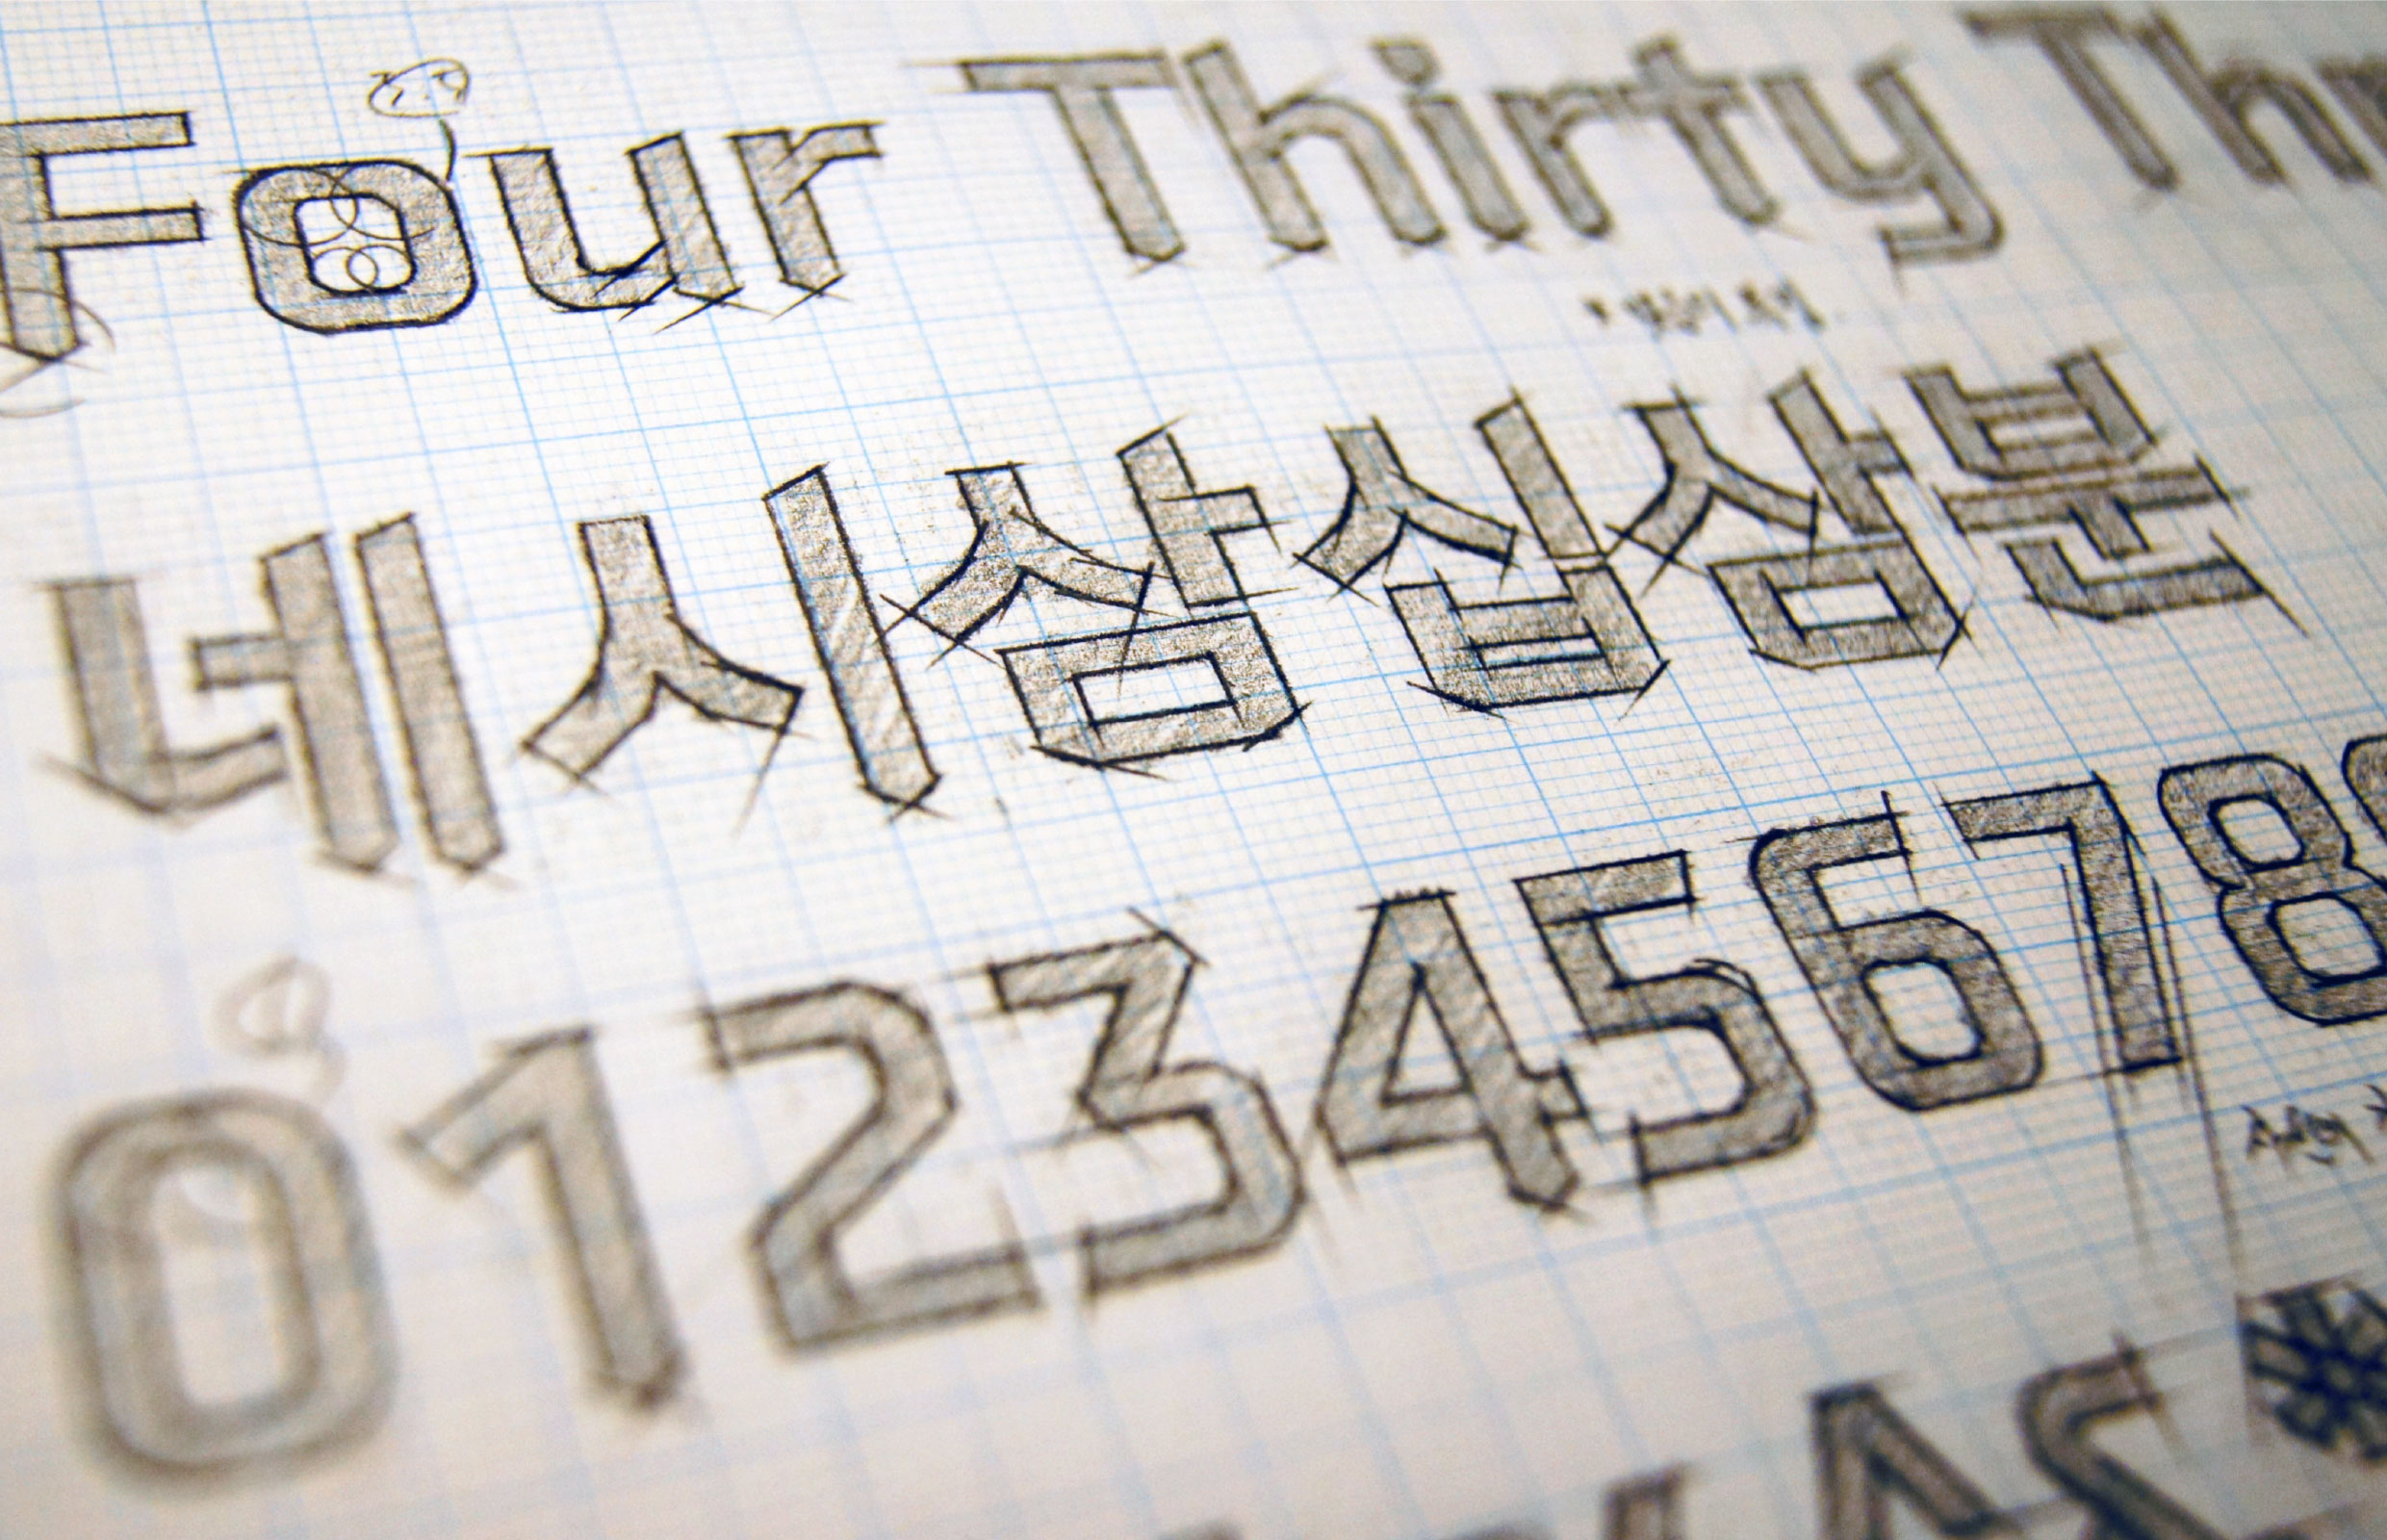 Four Thirty Thr
네시삼십삼분
012345678